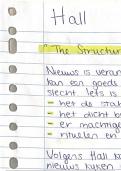 Hall
"The Structur
Nieuws is veran
kan een goeds
slecht. Iets is
- het de stat
- het dicht b
- er machtige
- rituelen en
Volgens Hall k
nieuws kijken